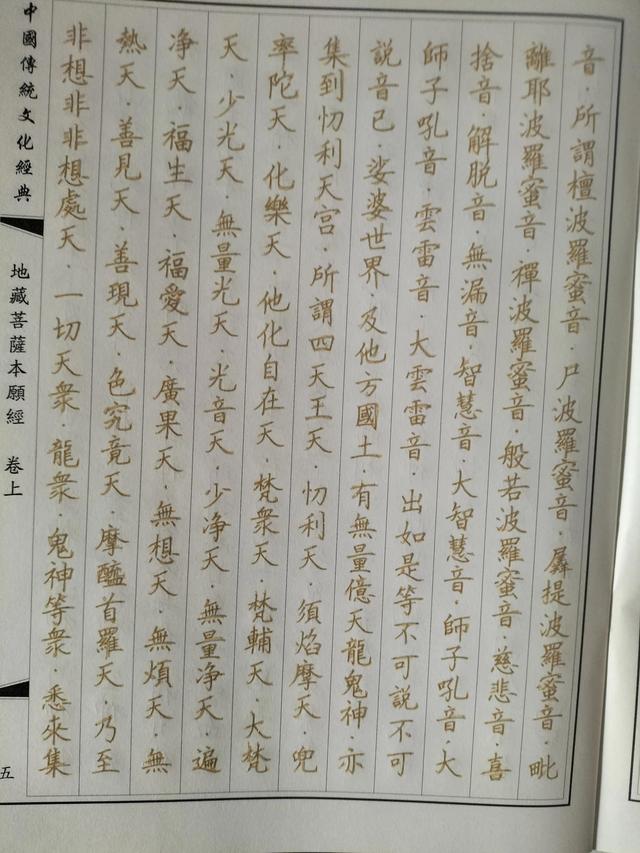 音．所謂檀波羅蜜音．尸波羅蜜音．羼提波羅蜜音．毗
離耶波羅蜜音．禪波羅蜜音．般若波羅蜜音．慈悲音．喜
捨音．解脫音．無漏音．智慧音．大智慧音．師子吼音．大
師子吼音．雲雷音．大雲雷音．出如是等不可說不可
說音已．娑婆世界．及他方國土．有無量億天龍鬼神．亦
集到忉利天宮．所謂四天王天．忉利天．須焰摩天．兜
率陀天．化樂天．他化自在天．梵衆天．梵輔天．大梵
天．少光天．無量光天．光音天．少净天．無量净天．遍
净天．福生天．福愛天．廣果天．無想天．無煩天．無
熱天．善見天．善現天．色究竟天．摩醯首羅天．乃至
非想非非想處天．一切天衆．龍衆．鬼神等衆．悉來集
中國傳統文化經典
地藏菩薩本願經 卷上
五